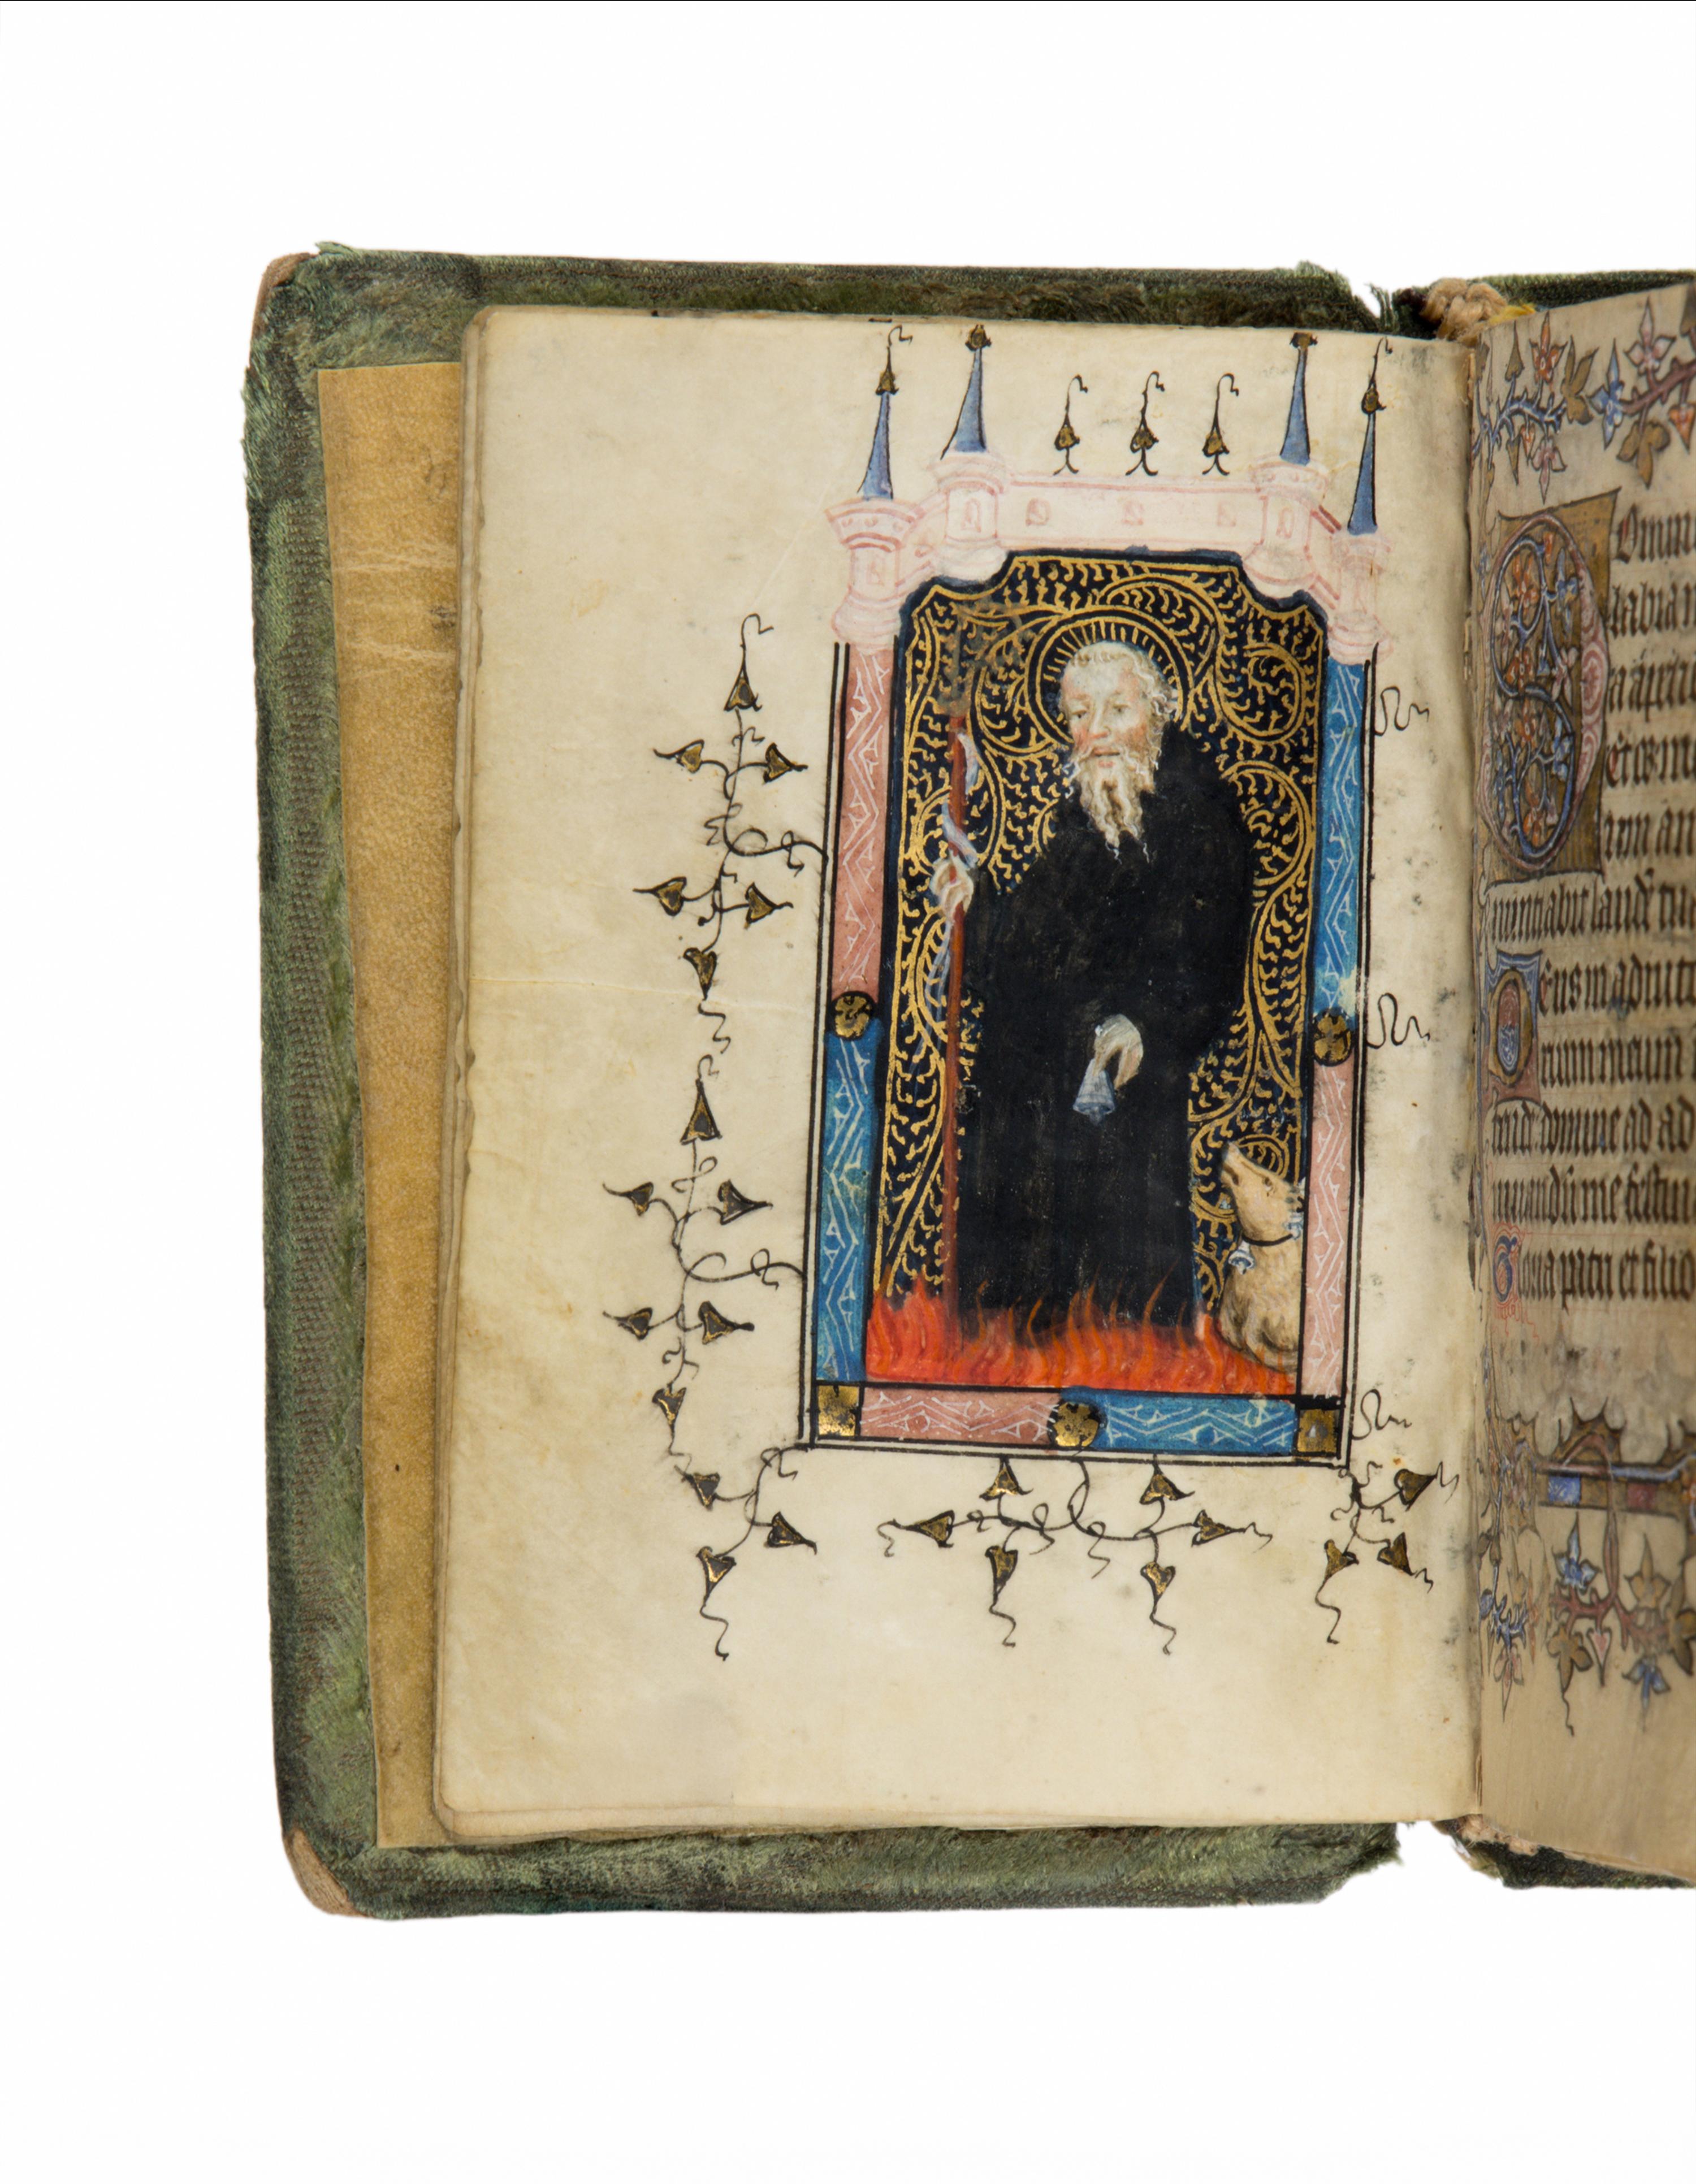 Domin
labia m
a aperie
et os me
um an
nuntiabit laudē tu
Deus in adiuto
rium meum
tende domine ad ad
iuuandū me festin
Gloria patri et filio